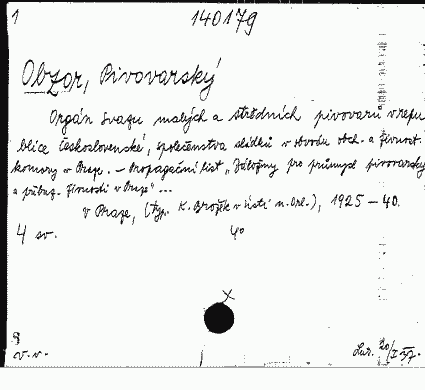 1
140179
Obzor, Pivovarský
Orgán Svazu malých a středních pivovarů v repu
blice Československé, společenstva sládků v obvodu obch. a živnost.
komory v Praze. – Propagační list „Záložny pro průmysl pivovarský
a příbuz. živnosti v Praze" ...
V Praze, (typ. K. Brožek v Ústí n. Orl.), 1925 – 40.
4 sv. 4°
v. v.
Lur. 20/I